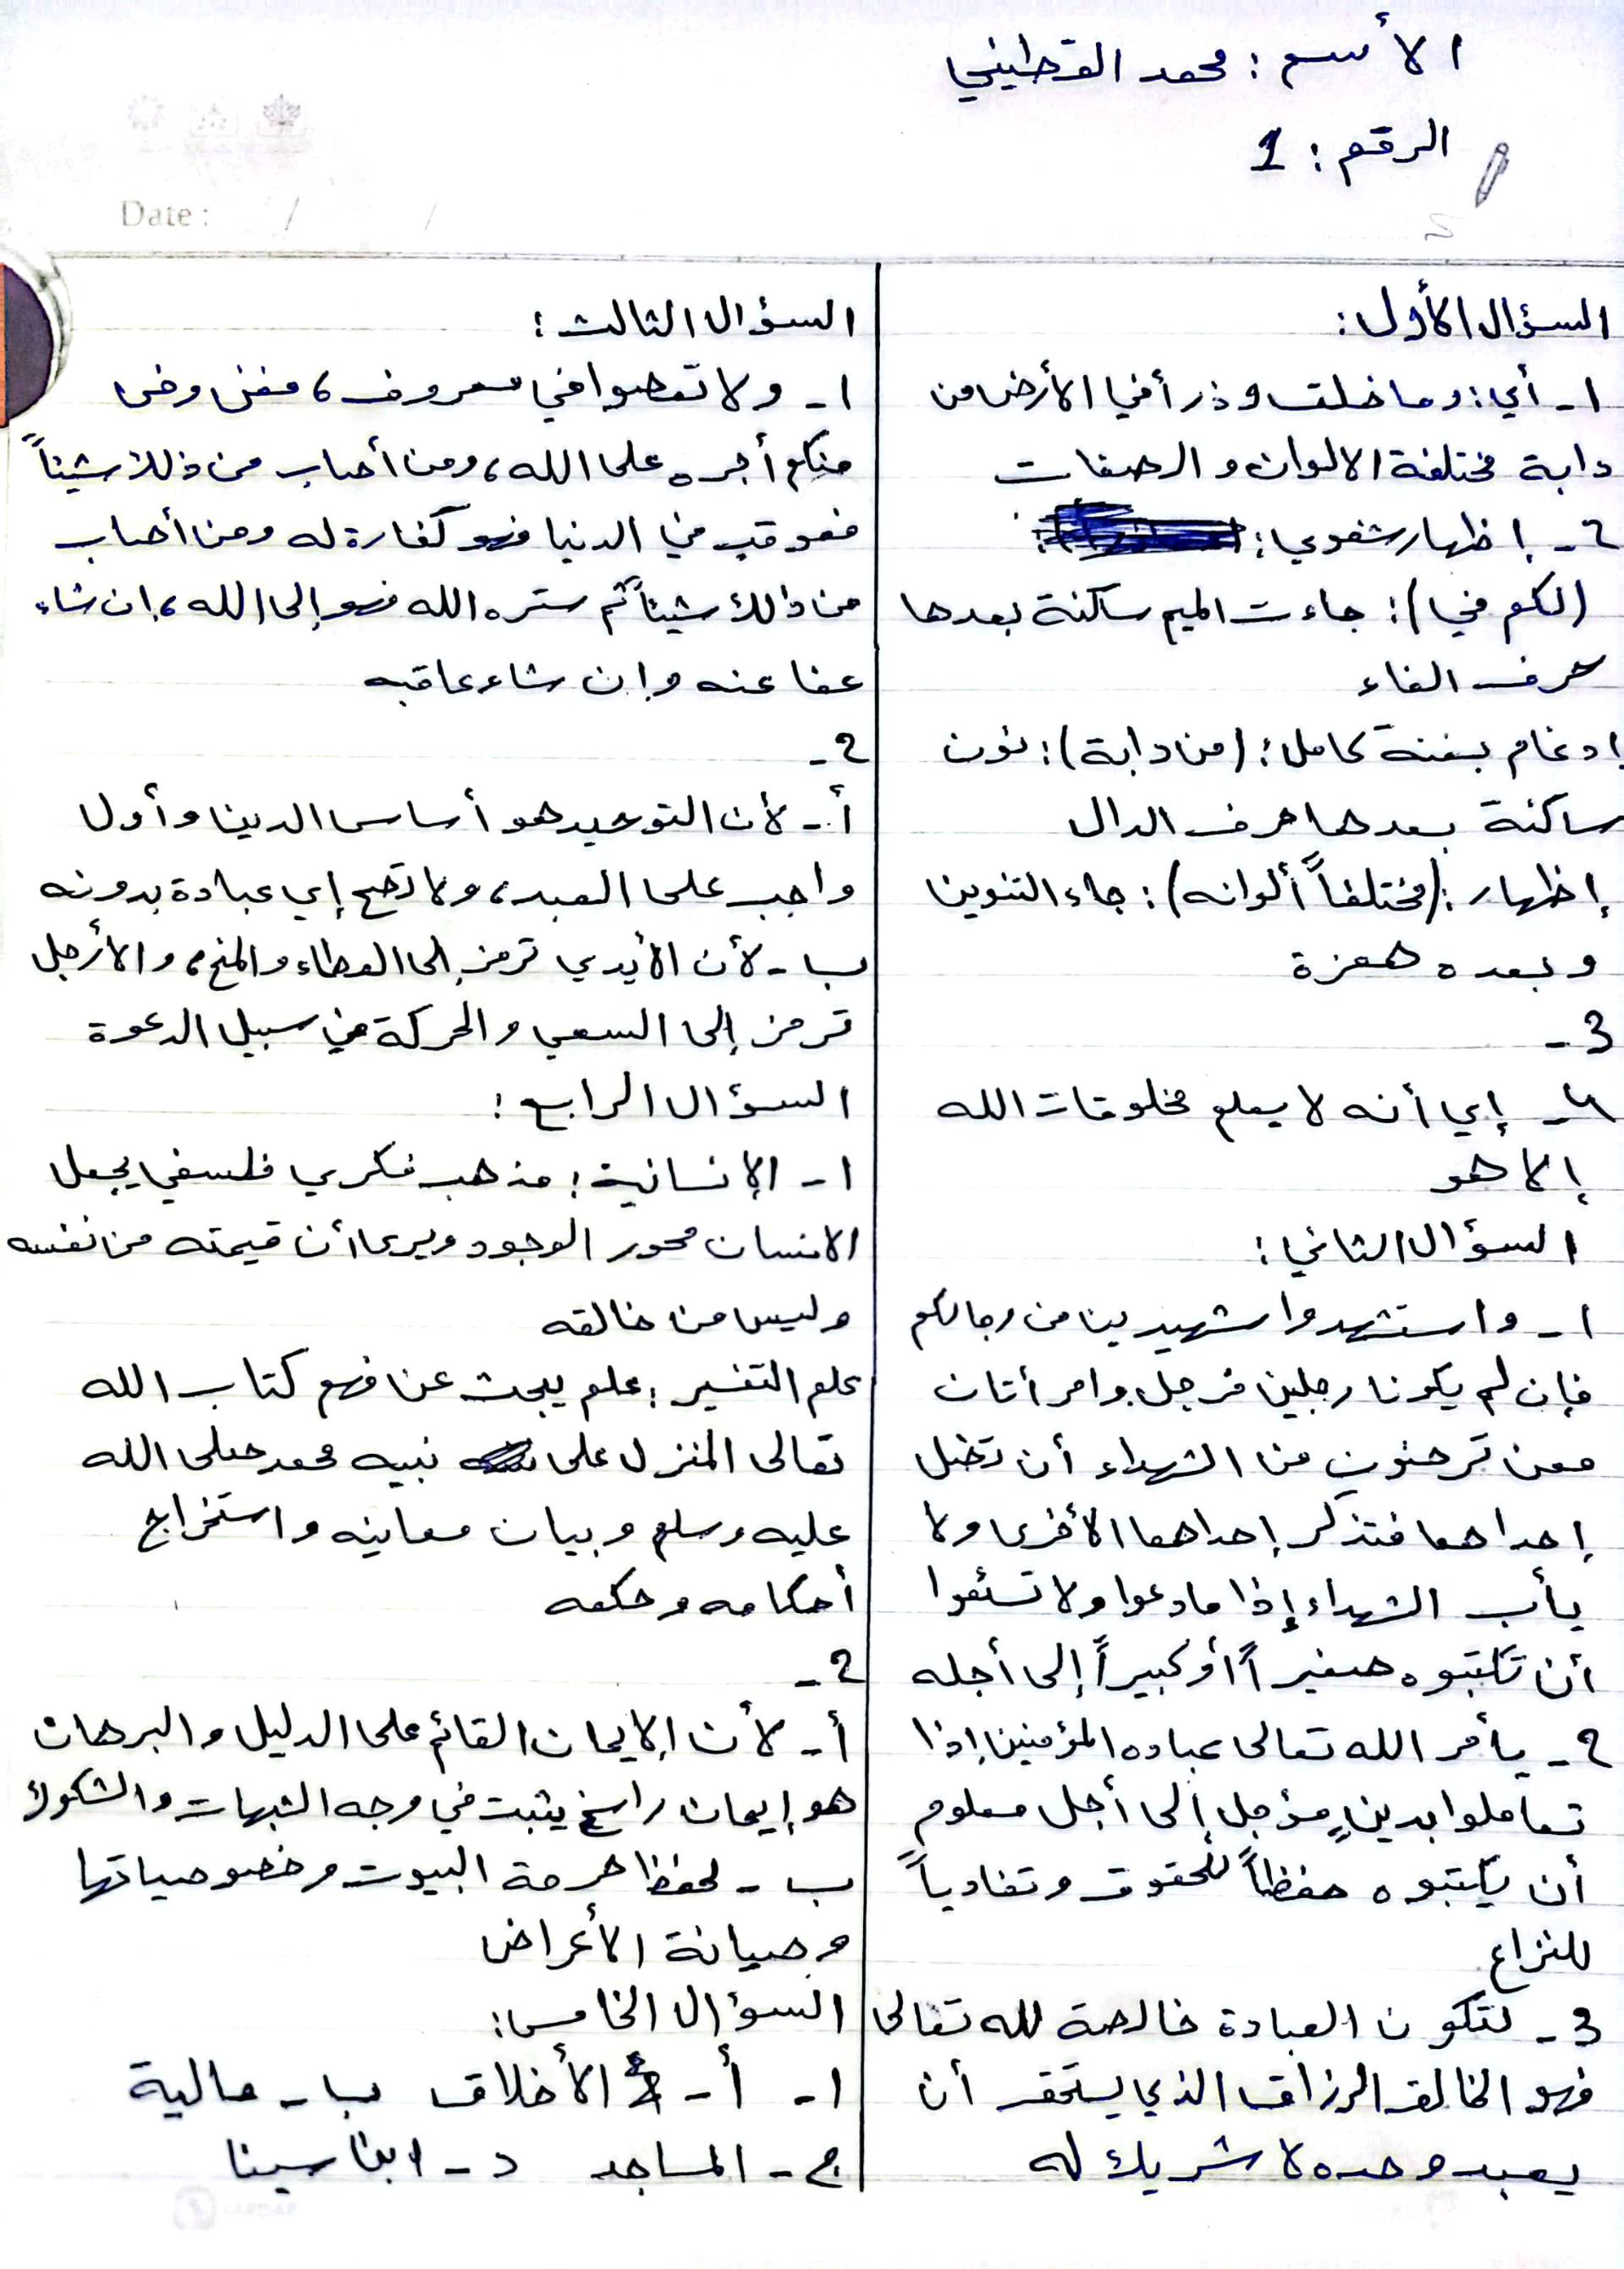 الأسم : محمد القطيني
الرقم : 1
Date : / /
السؤال الأول :
1 - أي : وما خلق وذرأ في الأرض من
دابة مختلفة الالوان و الصفات
2 - إظهار شفوي :
(لكم في) : جاءت الميم ساكنة بعدها
حرف الفاء
إدغام بغنة كامل : (من دابة) : نون
ساكنة بعدها حرف الدال
إظهار : (مختلفاً ألوانه) : جاء التنوين
وبعده همزة
3 -
4 - إي أنه لا يعلم مخلوقات الله
إلا هو
السؤال الثاني :
1 - واستشهدوا شهيدين من رجالكم
فإن لم يكونا رجلين فرجل وامرأتان
ممن ترضون من الشهداء أن تضل
إحداهما فتذكر إحداهما الأخرى ولا
يأب الشهداء إذا ما دعوا ولا تسئموا
أن تكتبوه صغيراً أو كبيراً إلى أجله
2 - يأمر الله تعالى عباده المؤمنين إذا
تعاملوا بدينٍ مؤجل إلى أجل معلوم
أن يكتبوه حفظاً للحقوق وتفادياً
للنزاع
3 - لتكون العبادة خالصة لله تعالى
فهو الخالق الرزاق الذي يستحق أن
يعبد وحده لا شريك له
السؤال الثالث :
1 - ولا تعصوا في معروف ، فمن وفى
منكم أجره على الله ، ومن أصاب من ذلك شيئاً
فعوقب في الدنيا فهو كفارة له ومن أصاب
من ذلك شيئاً ثم ستره الله فهو إلى الله ، إن شاء
عفا عنه وإن شاء عاقبه
2 -
أ - لأن التوحيد هو أساس الدين وأول
واجب على العبد ، ولا تصح إي عبادة بدونه
ب - لأن الأيدي ترمز إلى العطاء والمنح ، والأرجل
ترمز إلى السعي والحركة في سبيل الدعوة
السؤال الرابع :
1 - الإنسانية : مذهب فكري فلسفي يجعل
الانسان محور الوجود ويرى أن قيمته من نفسه
وليس من خالقه
علم التفسير : علم يبحث عن فهم كتاب الله
تعالى المنزل على نبيه محمد صلى الله
عليه وسلم وبيان معانيه واستخراج
أحكامه وحكمه
2 -
أ - لأن الإيمان القائم على الدليل والبرهان
هو إيمان راسخ يثبت في وجه الشبهات والشكوك
ب - لحفظ حرمة البيوت وخصوصياتها
وصيانة الأعراض
السؤال الخامس :
1 - أ - الأخلاق ب - مالية
ج - المساجد د - ابن سينا